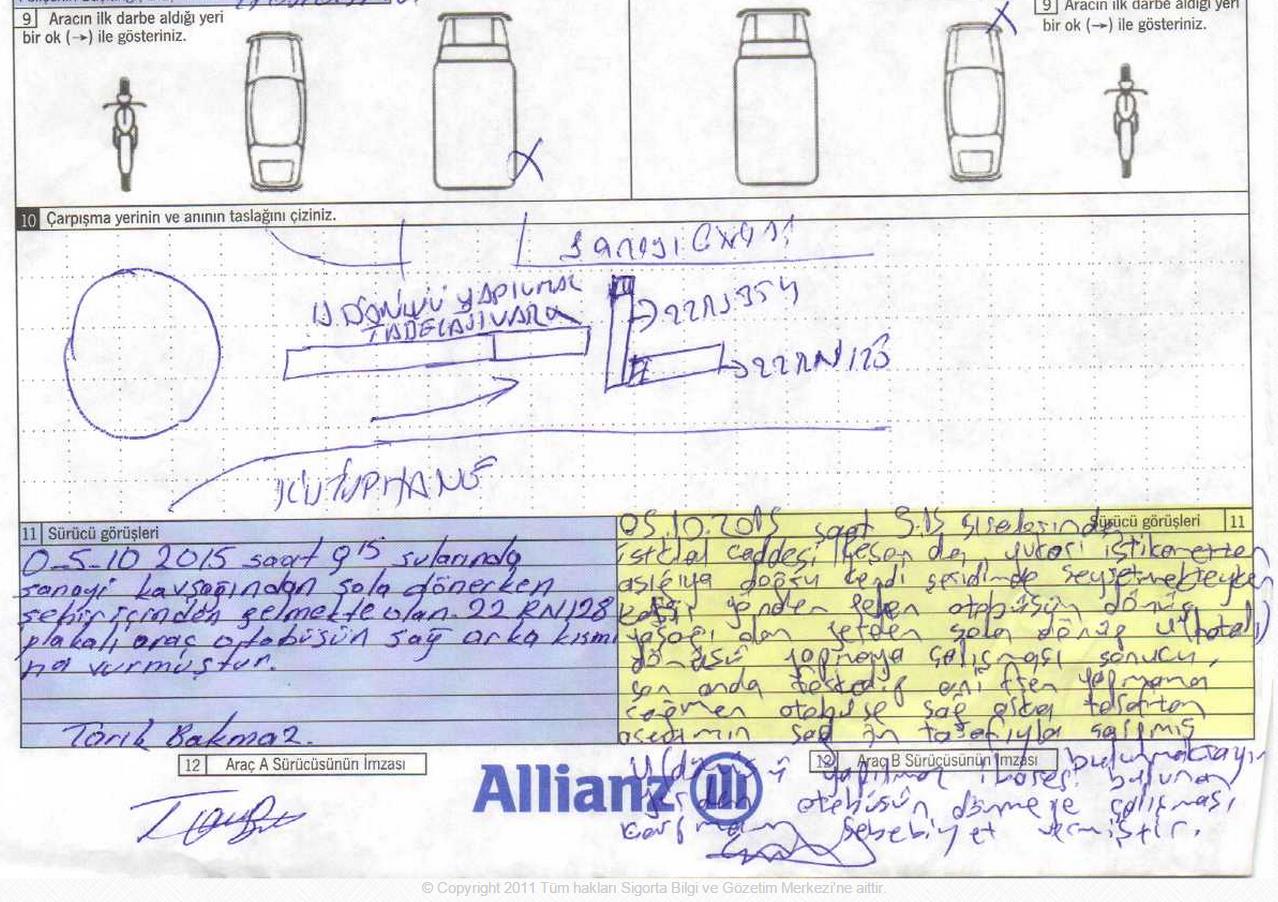 9 Aracın ilk darbe aldığı yeri
bir ok (→) ile gösteriniz.
9 Aracın ilk darbe aldığı yeri
bir ok (→) ile gösteriniz.
10 Çarpışma yerinin ve anının taslağını çiziniz.
U DÖNÜŞÜ YAPILMAZ
TABELASI VAR
22 RN 128
KÜTÜPHANE
11 Sürücü görüşleri
0_5_10 2015 saat 9 15 sularında
sanayi kavşağından sola dönerken
şehir içinden gelmekte olan 22 RN 128
plakalı araç otobüsün sağ arka kısmı
na vurmuştur.
Tarık Bakmaz.
12 Araç A Sürücüsünün İmzası
Allianz
Sürücü görüşleri 11
05.10.2015 saat 9.15
istiklal caddesi yukarı istikametten
aşağıya doğru kendi şeridimde seyretmekteyken
karşı yönden gelen otobüsün dönüş
yasağı olan yerden sola dönüş U (hatalı)
dönüşü yapmaya çalışması sonucu,
son anda yapmama
rağmen otobüse sağ arka taraftan
sağ ön tarafıyla çarpmış
bulunmaktayım
12 Araç B Sürücüsünün İmzası
U dönüşü yapılmaz bulunan
yerden otobüsün dönmeye çalışması
sebebiyet vermiştir.
© Copyright 2011 Tüm hakları Sigorta Bilgi ve Gözetim Merkezi'ne aittir.